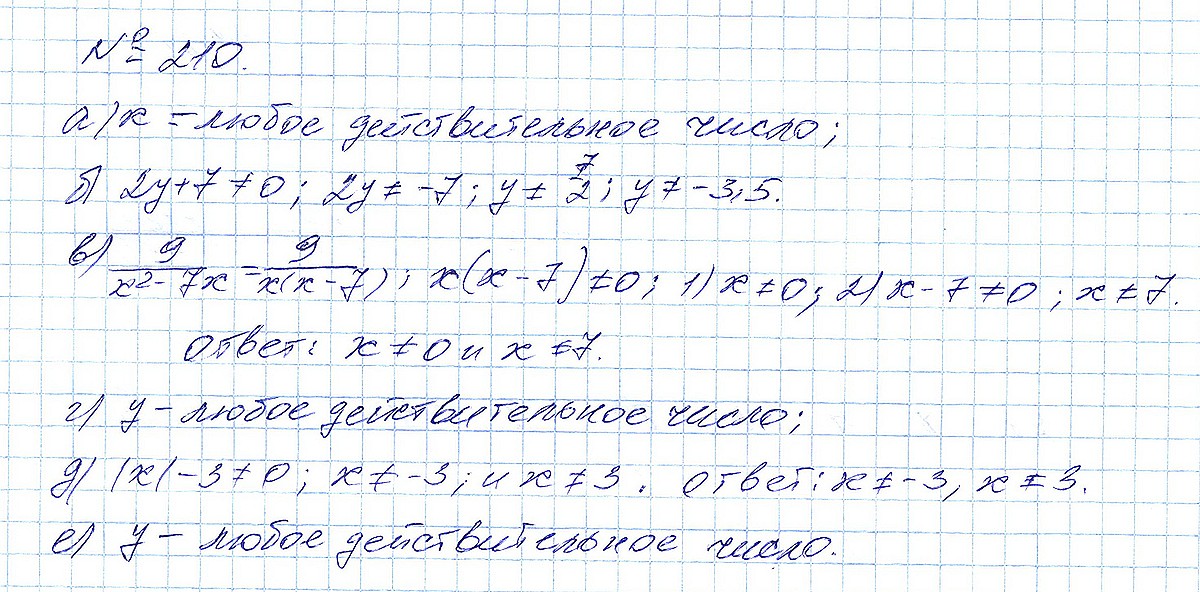 № 210.
а) x – любое действительное число;
б) 2y+7≠0; 2y≠-7; y≠ 7/2; y≠-3,5.
в) 9/(x²-7x) = 9/(x(x-7)); x(x-7)≠0; 1) x≠0; 2) x-7≠0; x≠7.
ответ: x≠0 и x≠7.
г) y – любое действительное число;
д) |x|-3≠0; x≠-3; и x≠3. ответ: x≠-3, x≠3.
е) y – любое действительное число.